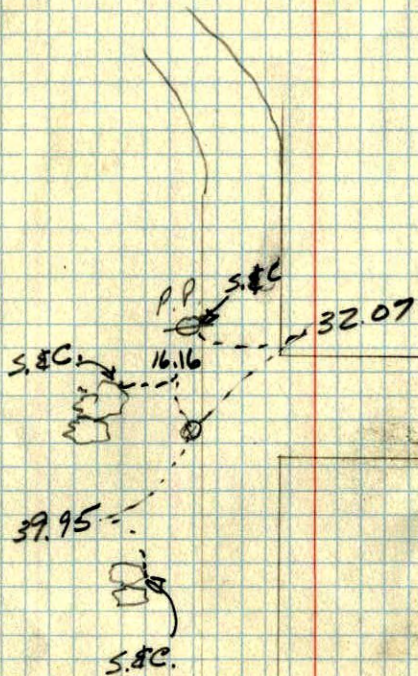 S.&C
P.P.
32.07
S.&C.
16.16
39.95
S.&C.